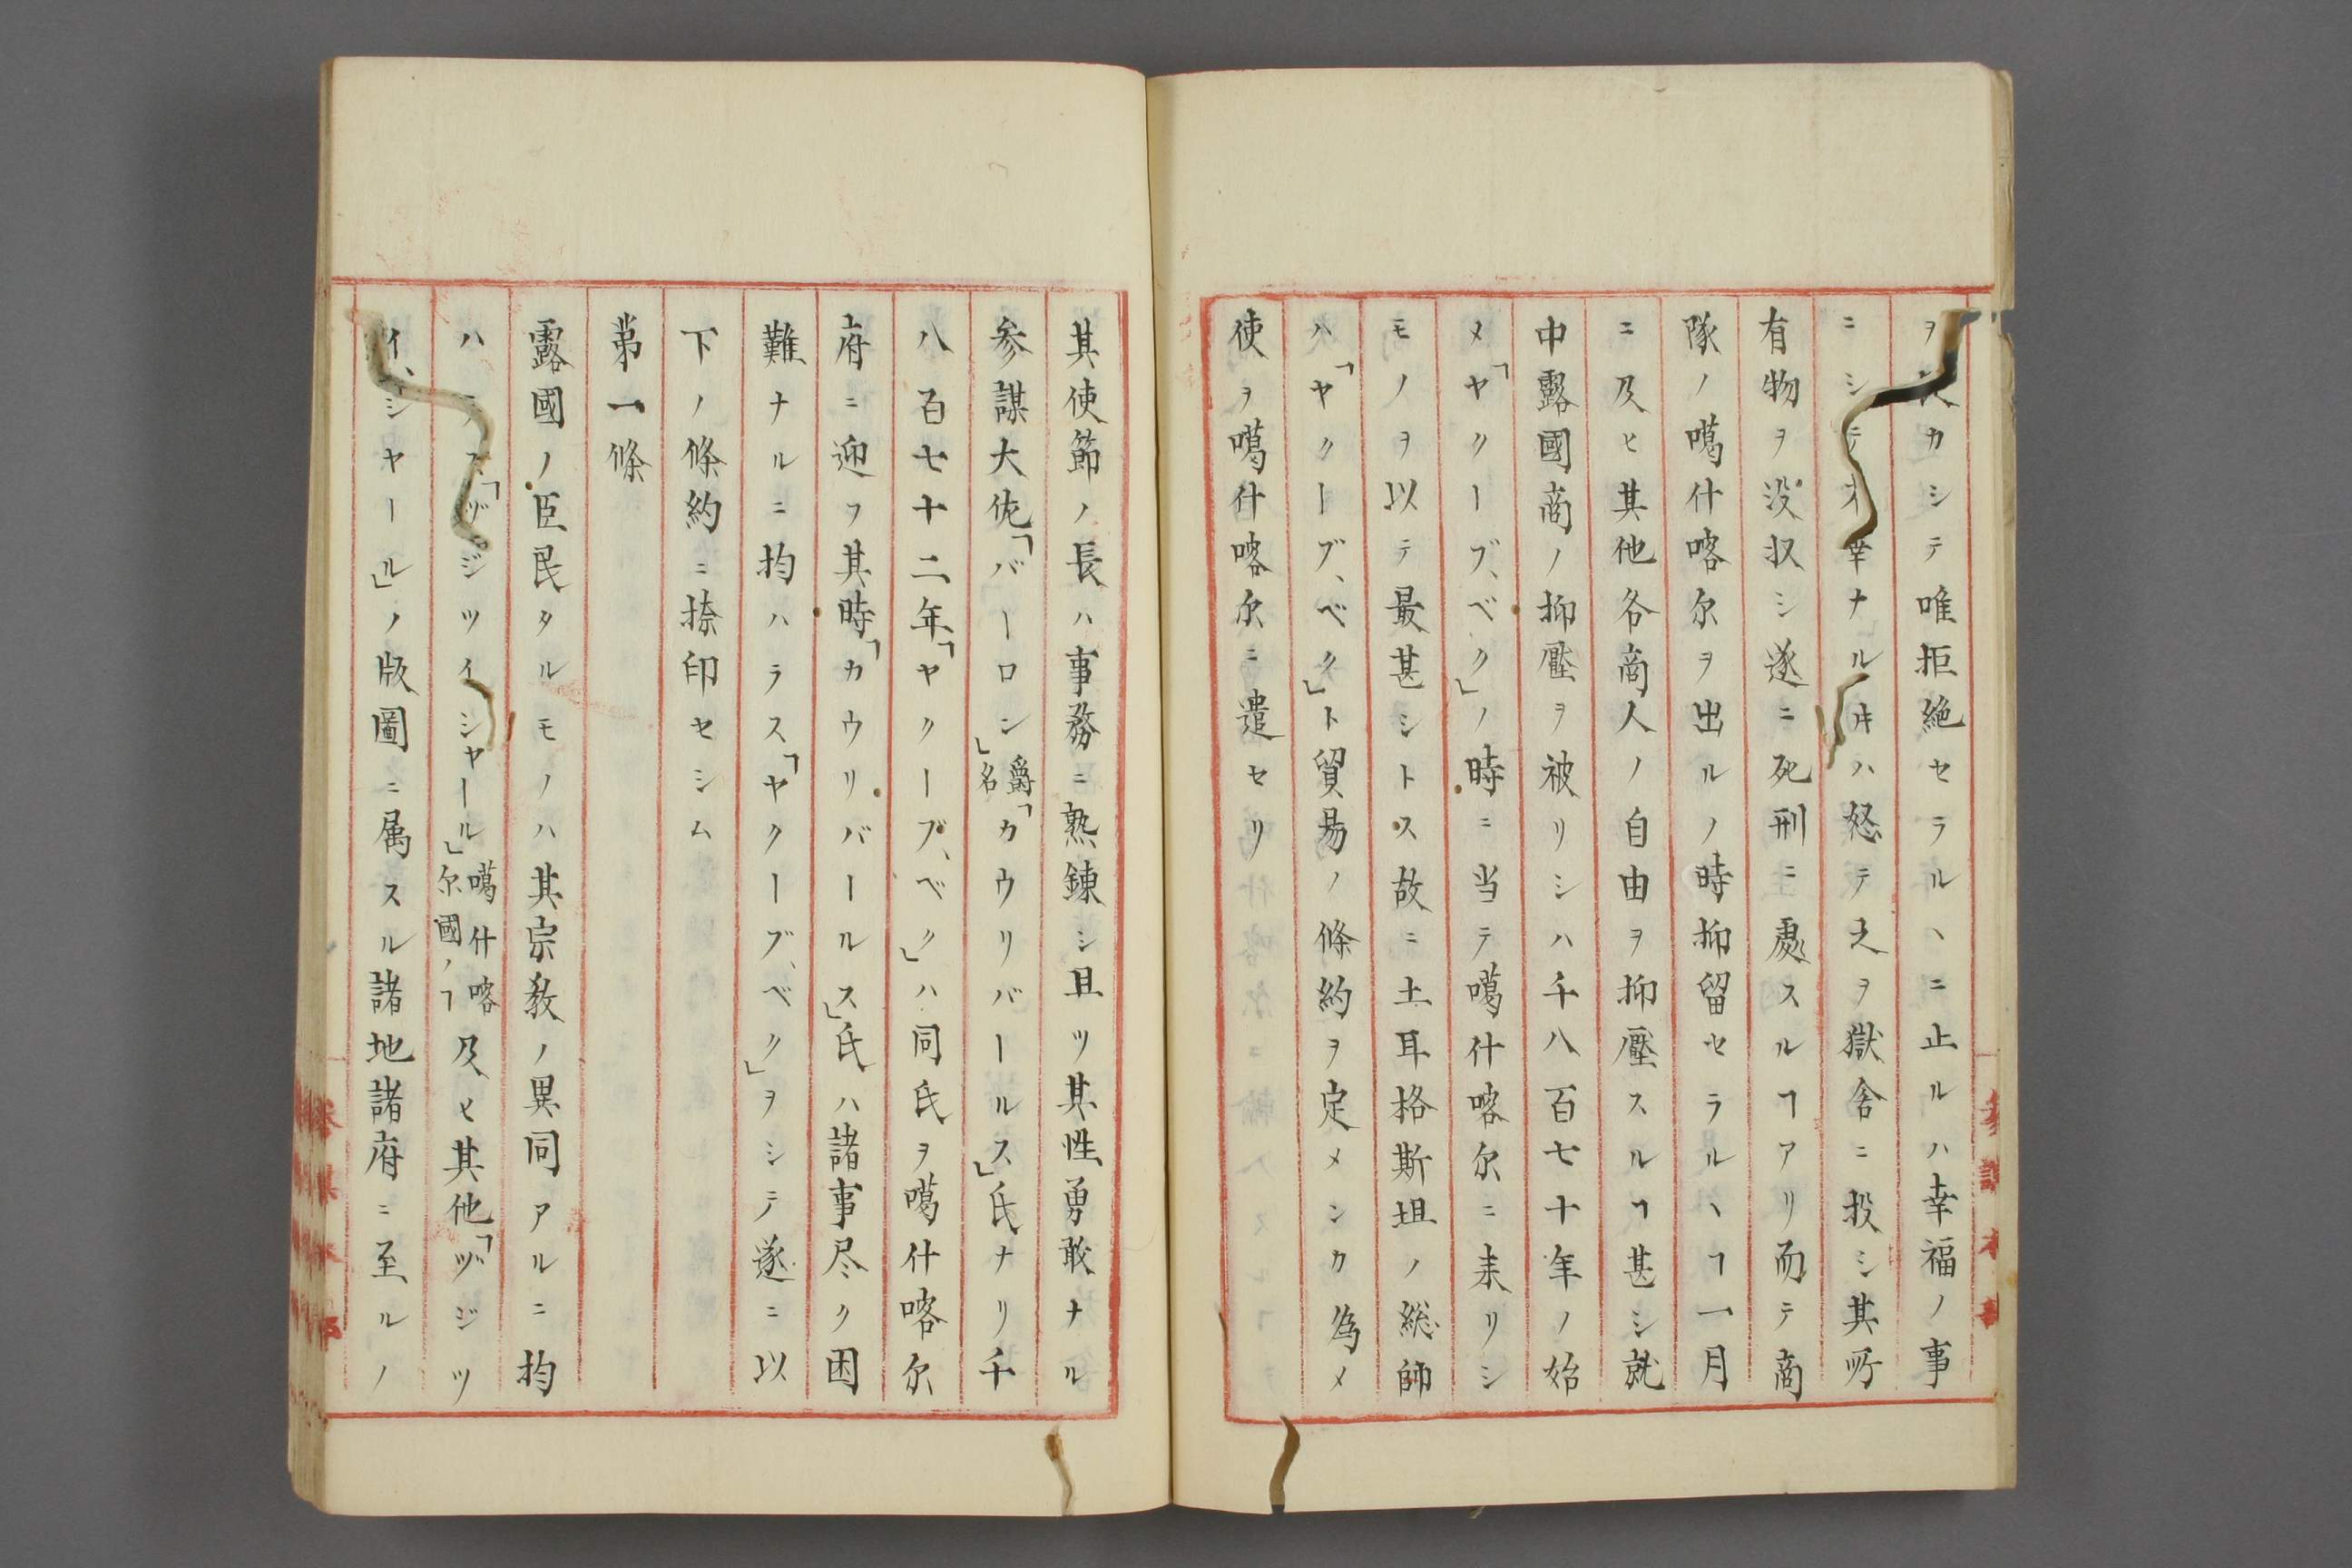 ヲ カシテ唯拒絶セラルヽニ止ルハ幸福ノ事
ニシテ不幸ナルキハ怒テ之ヲ獄舎ニ投シ其所
有物ヲ没収シ遂ニ死刑ニ處スルヿアリ而テ商
隊ノ噶什喀尓ヲ出ルノ時抑留セラルヽヿ一月
ニ及ヒ其他各商人ノ自由ヲ抑壓スルヿ甚シ就
中露國商ノ抑壓ヲ被リシハ千八百七十年ノ始
メ「ヤクーブ、ベク」ノ時ニ当テ噶什喀尓ニ来リシ
モノヲ以テ最甚シトス故ニ土耳格斯坦ノ総師
ハ「ヤクーブ、ベク」ト貿昜ノ條約ヲ定メンカ為メ
使ヲ噶什喀尓ニ遣セリ
其使節ノ長ハ事務ニ熟錬シ且ツ其性勇敢ナル
参謀大佐「バーロン」爵名「カウリバールス」氏ナリ千
八百七十二年「ヤクーブ、ベク」ハ同氏ヲ噶什喀尓
府ニ迎フ其時「カウリバールス」氏ハ諸事尽ク困
難ナルニ拘ハラス「ヤクーブ、ベク」ヲシテ遂ニ以
下ノ條約ニ捺印セシム
第一條
露國ノ臣民タルモノハ其宗教ノ異同アルニ拘
ハラス「ヅジツイシャール」噶什喀尓國ノヿ及ヒ其他「ヅジツ
イ、シヤール」ノ版圖ニ属スル諸地諸府ニ至ルノ